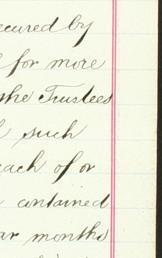 secured by
for more
the Trustees
such
each of or
contained
months